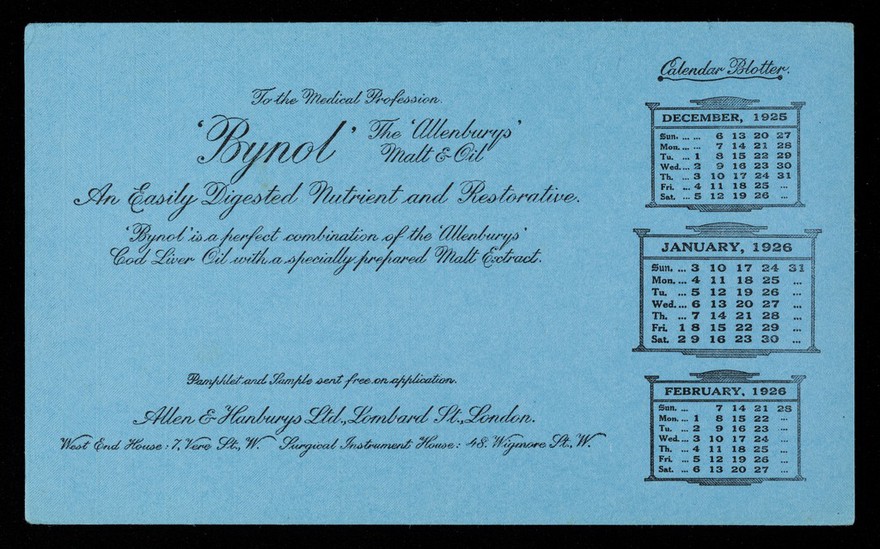 To the Medical Profession.
'Bynol' The 'Allenburys'
Malt & Oil
An Easily Digested Nutrient and Restorative.
'Bynol' is a perfect combination of the 'Allenburys'
Cod Liver Oil with a specially prepared Malt Extract.
Pamphlet and Sample sent free on application.
Allen & Hanburys Ltd., Lombard St., London.
West End House: 7, Vere St., W. Surgical Instrument House: 48, Wigmore St., W.
Calendar Blotter.
DECEMBER, 1925
Sun. ... ... 6 13 20 27
Mon. ... ... 7 14 21 28
Tu. ... 1 8 15 22 29
Wed. ... 2 9 16 23 30
Th. ... 3 10 17 24 31
Fri. ... 4 11 18 25 ...
Sat. ... 5 12 19 26 ...
JANUARY, 1926
Sun. ... 3 10 17 24 31
Mon. ... 4 11 18 25 ...
Tu. ... 5 12 19 26 ...
Wed. ... 6 13 20 27 ...
Th. ... 7 14 21 28 ...
Fri. 1 8 15 22 29 ...
Sat. 2 9 16 23 30 ...
FEBRUARY, 1926
Sun. ... 7 14 21 28
Mon. ... 1 8 15 22 ...
Tu. ... 2 9 16 23 ...
Wed. ... 3 10 17 24 ...
Th. ... 4 11 18 25 ...
Fri. ... 5 12 19 26 ...
Sat. ... 6 13 20 27 ...